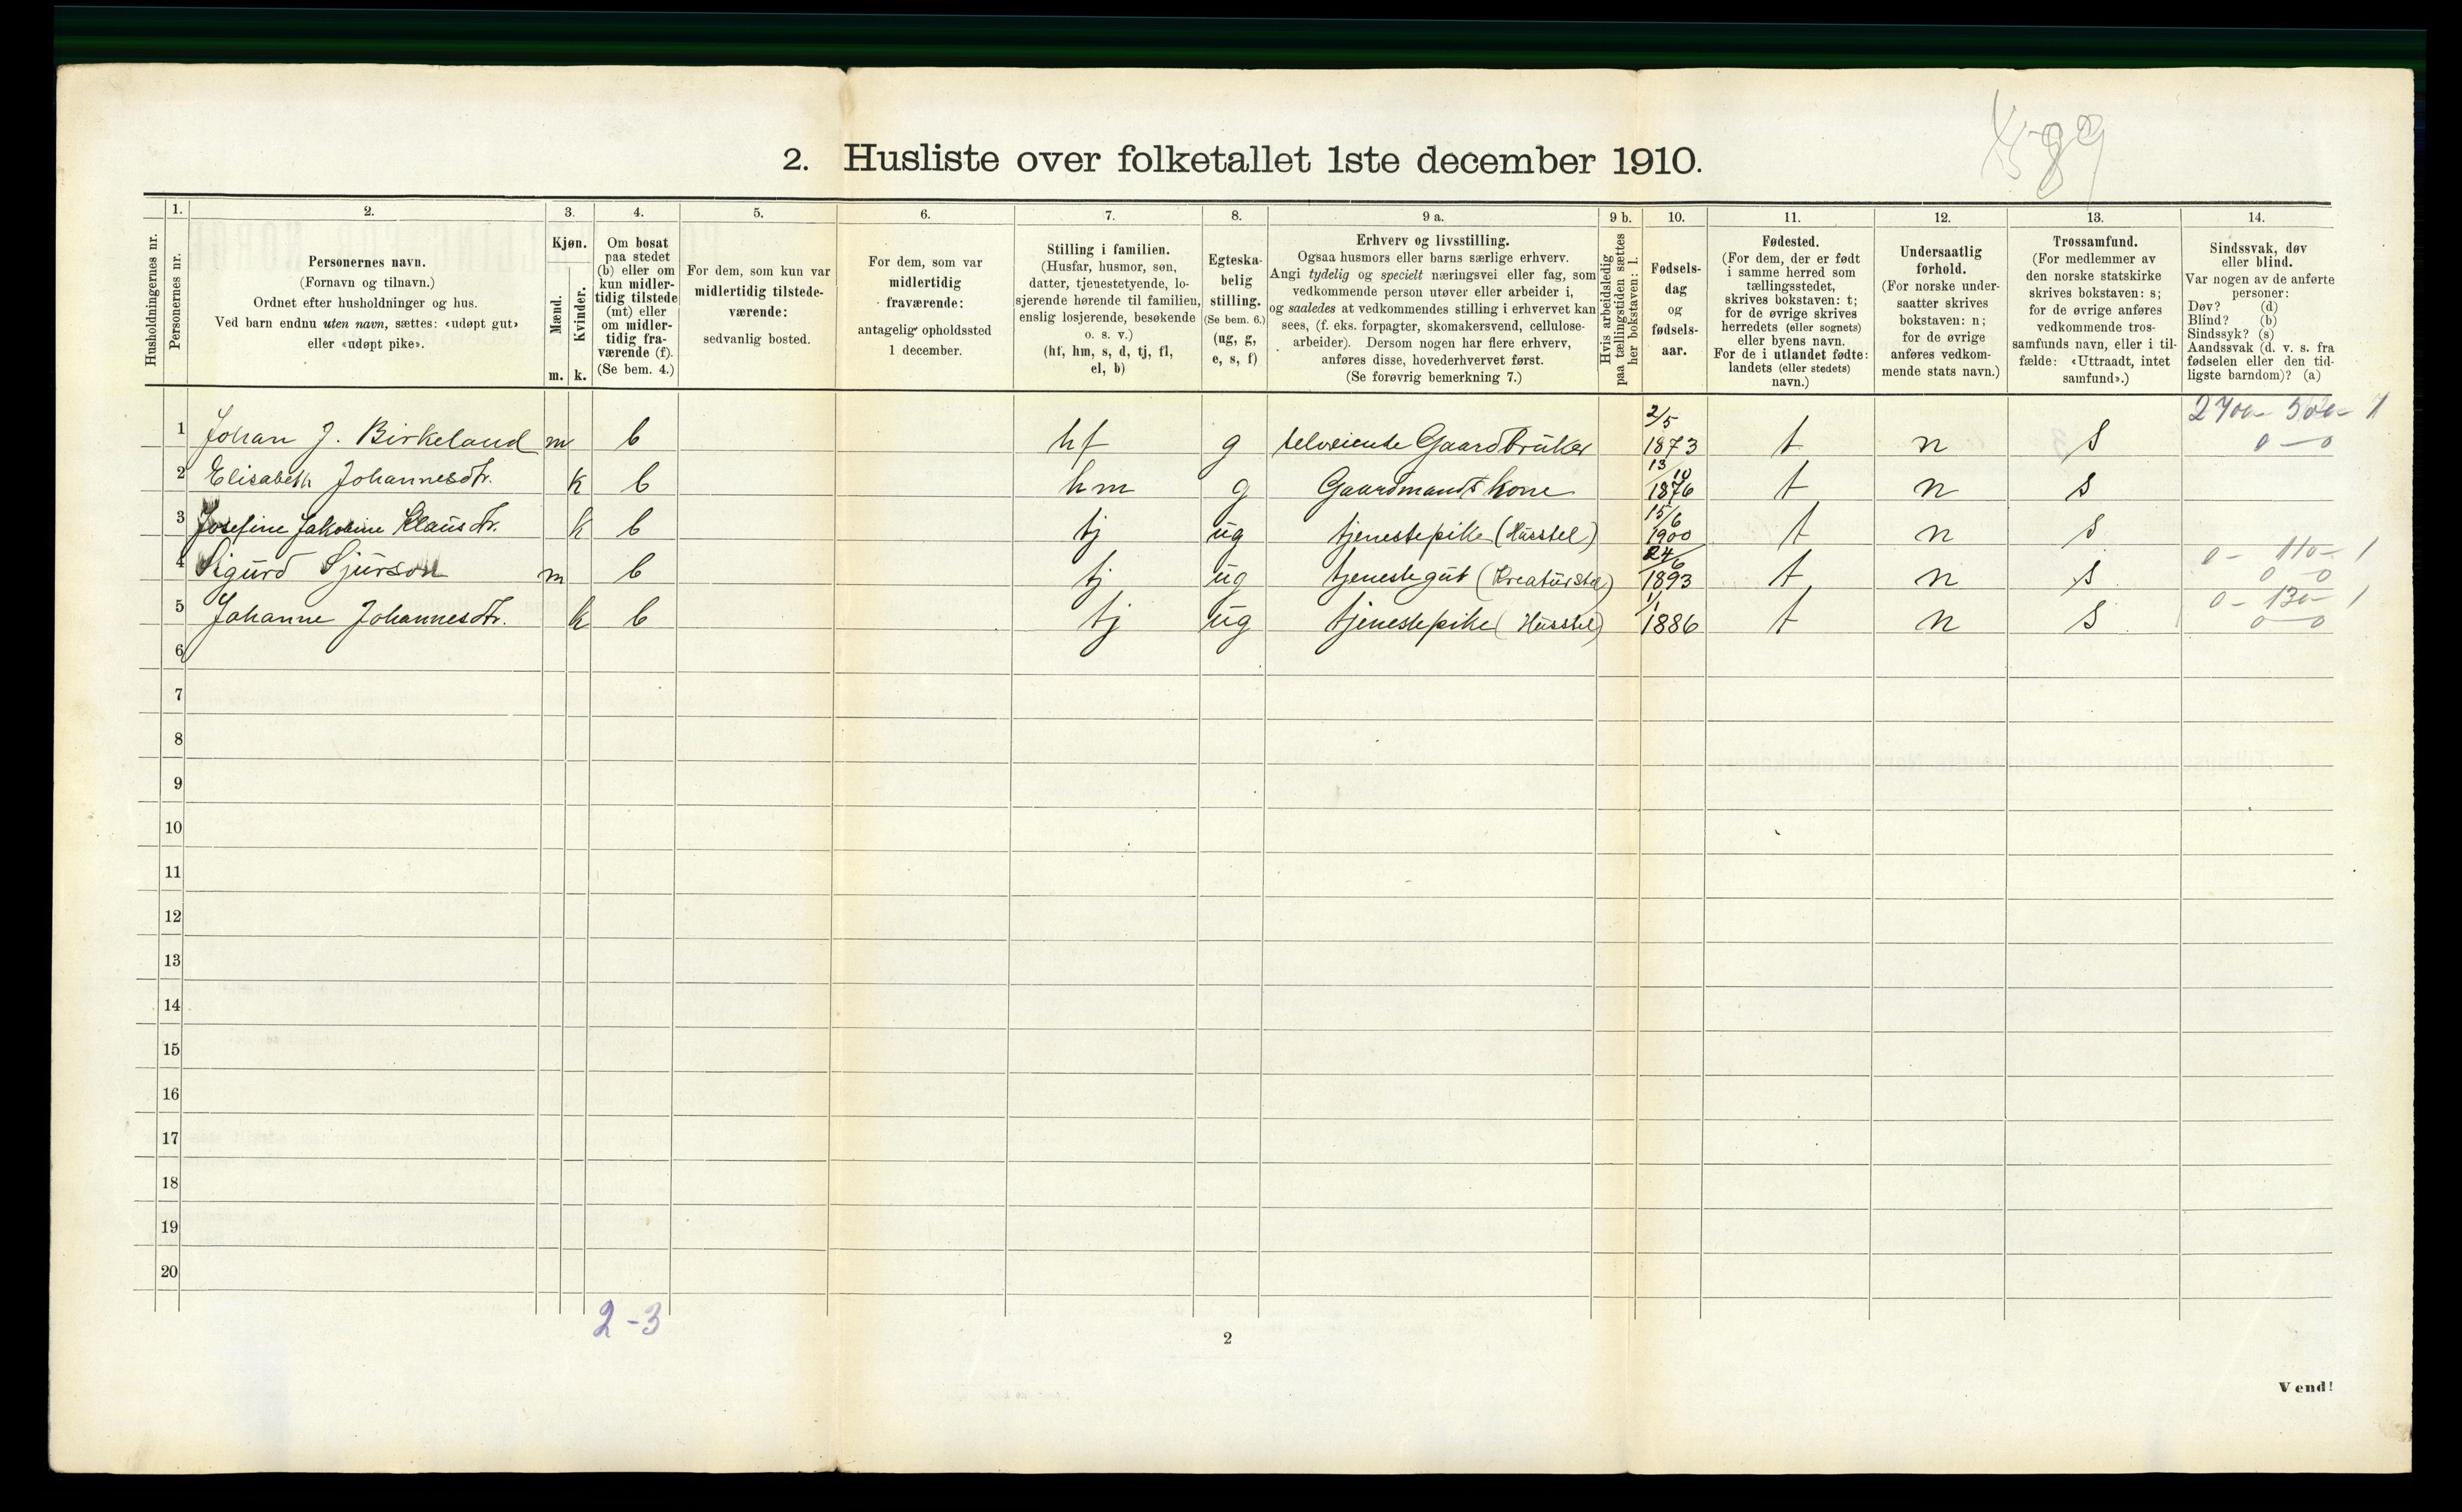 2. Husliste over folketallet 1ste december 1910.
Husholdningernes nr.
1.
Personernes nr.
2.
Personernes navn.
(Fornavn og tilnavn.)
Ordnet efter husholdninger og hus.
Ved barn endnu uten navn, sættes: «udøpt gut»
eller «udøpt pike».
3.
Kjøn.
Mænd.
Kvinder.
m. k.
4.
Om bosat
paa stedet
(b) eller om
kun midler-
tidig tilstede
(mt) eller
om midler-
tidig fra-
værende (f).
(Se bem. 4.)
5.
For dem, som kun var
midlertidig tilstede-
værende:
sedvanlig bosted.
6.
For dem, som var
midlertidig
fraværende:
antagelig opholdssted
1 december.
7.
Stilling i familien.
(Husfar, husmor, søn,
datter, tjenestetyende, lo-
sjerende hørende til familien,
enslig losjerende, besøkende
o. s. v.)
(hf, hm, s, d, tj, fl,
el, b)
8.
Egteska-
belig
stilling.
(Se bem. 6.)
(ug, g,
e, s, f)
9 a.
Erhverv og livsstilling.
Ogsaa husmors eller barns særlige erhverv.
Angi tydelig og specielt næringsvei eller fag, som
vedkommende person utøver eller arbeider i,
og saaledes at vedkommendes stilling i erhvervet kan
sees, (f. eks. forpagter, skomakersvend, cellulose-
arbeider). Dersom nogen har flere erhverv,
anføres disse, hovederhvervet først.
(Se forøvrig bemerkning 7.)
9 b.
Hvis arbeidsledig
paa tællingstiden sættes
her bokstaven: l.
10.
Fødsels-
dag
og
fødsels-
aar.
11.
Fødested.
(For dem, der er født
i samme herred som
tællingsstedet,
skrives bokstaven: t;
for de øvrige skrives
herredets (eller sognets)
eller byens navn.
For de i utlandet fødte:
landets (eller stedets)
navn.)
12.
Undersaatlig
forhold.
(For norske under-
saatter skrives
bokstaven: n;
for de øvrige
anføres vedkom-
mende stats navn.)
13.
Trossamfund.
(For medlemmer av
den norske statskirke
skrives bokstaven: s;
for de øvrige anføres
vedkommende tros-
samfunds navn, eller i til-
fælde: «Uttraadt, intet
samfund».)
14.
Sindssvak, døv
eller blind.
Var nogen av de anførte
personer:
Døv? (d)
Blind? (b)
Sindssyk? (s)
Aandssvak (d. v. s. fra
fødselen eller den tid-
ligste barndom)? (a)
1 Johan J. Birkeland m b hf g selveiende Gaardbruker 2/5 1873 t n s 2700- 500- 1
0 - 0
2 Elisabeth Johannesdtr. k b hm g Gaardmands kone 13/10 1876 t n s
3 Josefine Jakobine Klausdtr. k b tj ug tjenestepike (Husstel) 15/6 1900 t n s
4 Sigurd Sjurson m b tj ug tjenestegut (Kreaturstel) 24/6 1893 t n s 0- 110- 1
0 - 0
5 Johanne Johannesdtr. k b tj ug tjenestepike (Husstel) 1/1 1886 t n s 0- 130- 1
0 - 0
6
7
8
9
10
11
12
13
14
15
16
17
18
19
20
2-3
2
Vend!